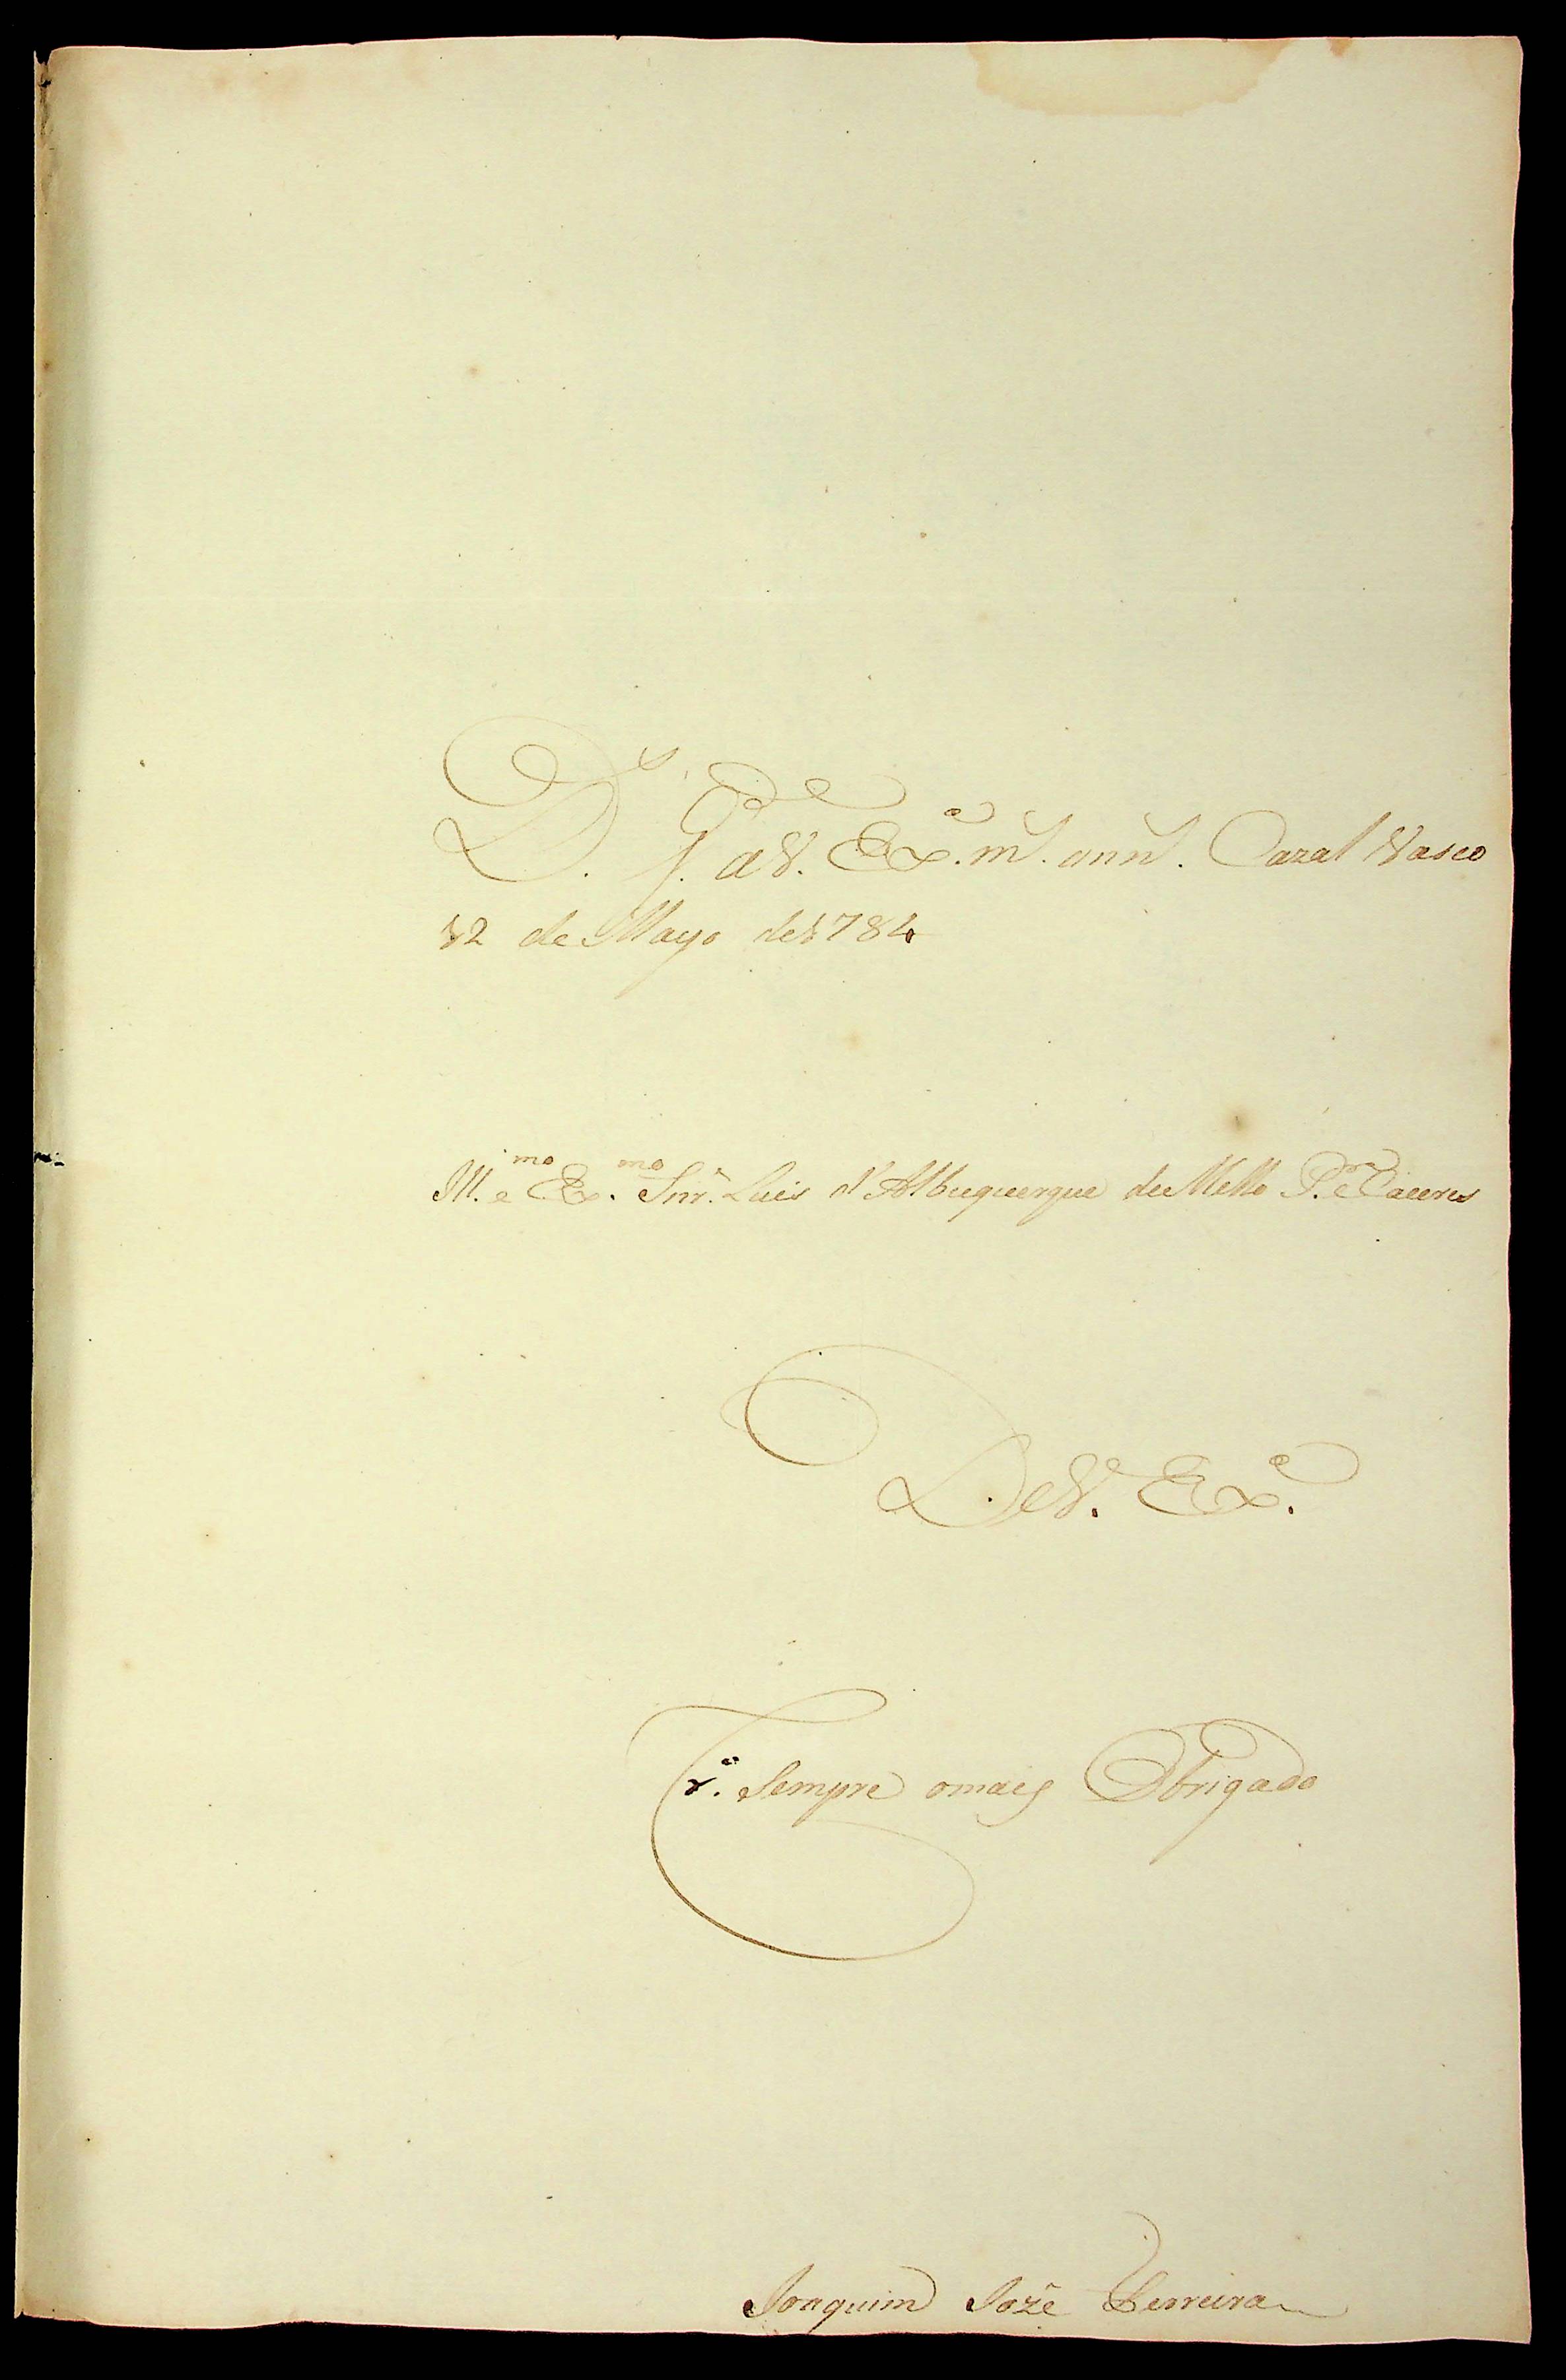 D.s g.de a V. Ex.a m.s ann.s Cazal Vasco
12 de Mayo de 1784
Ill.mo e Ex.mo Snr. Luis d'Albuquerque de Mello P.ra e Caceres
De V. Ex.a
Sempre o mais Obrigado
Joaquim Jozé Ferreira